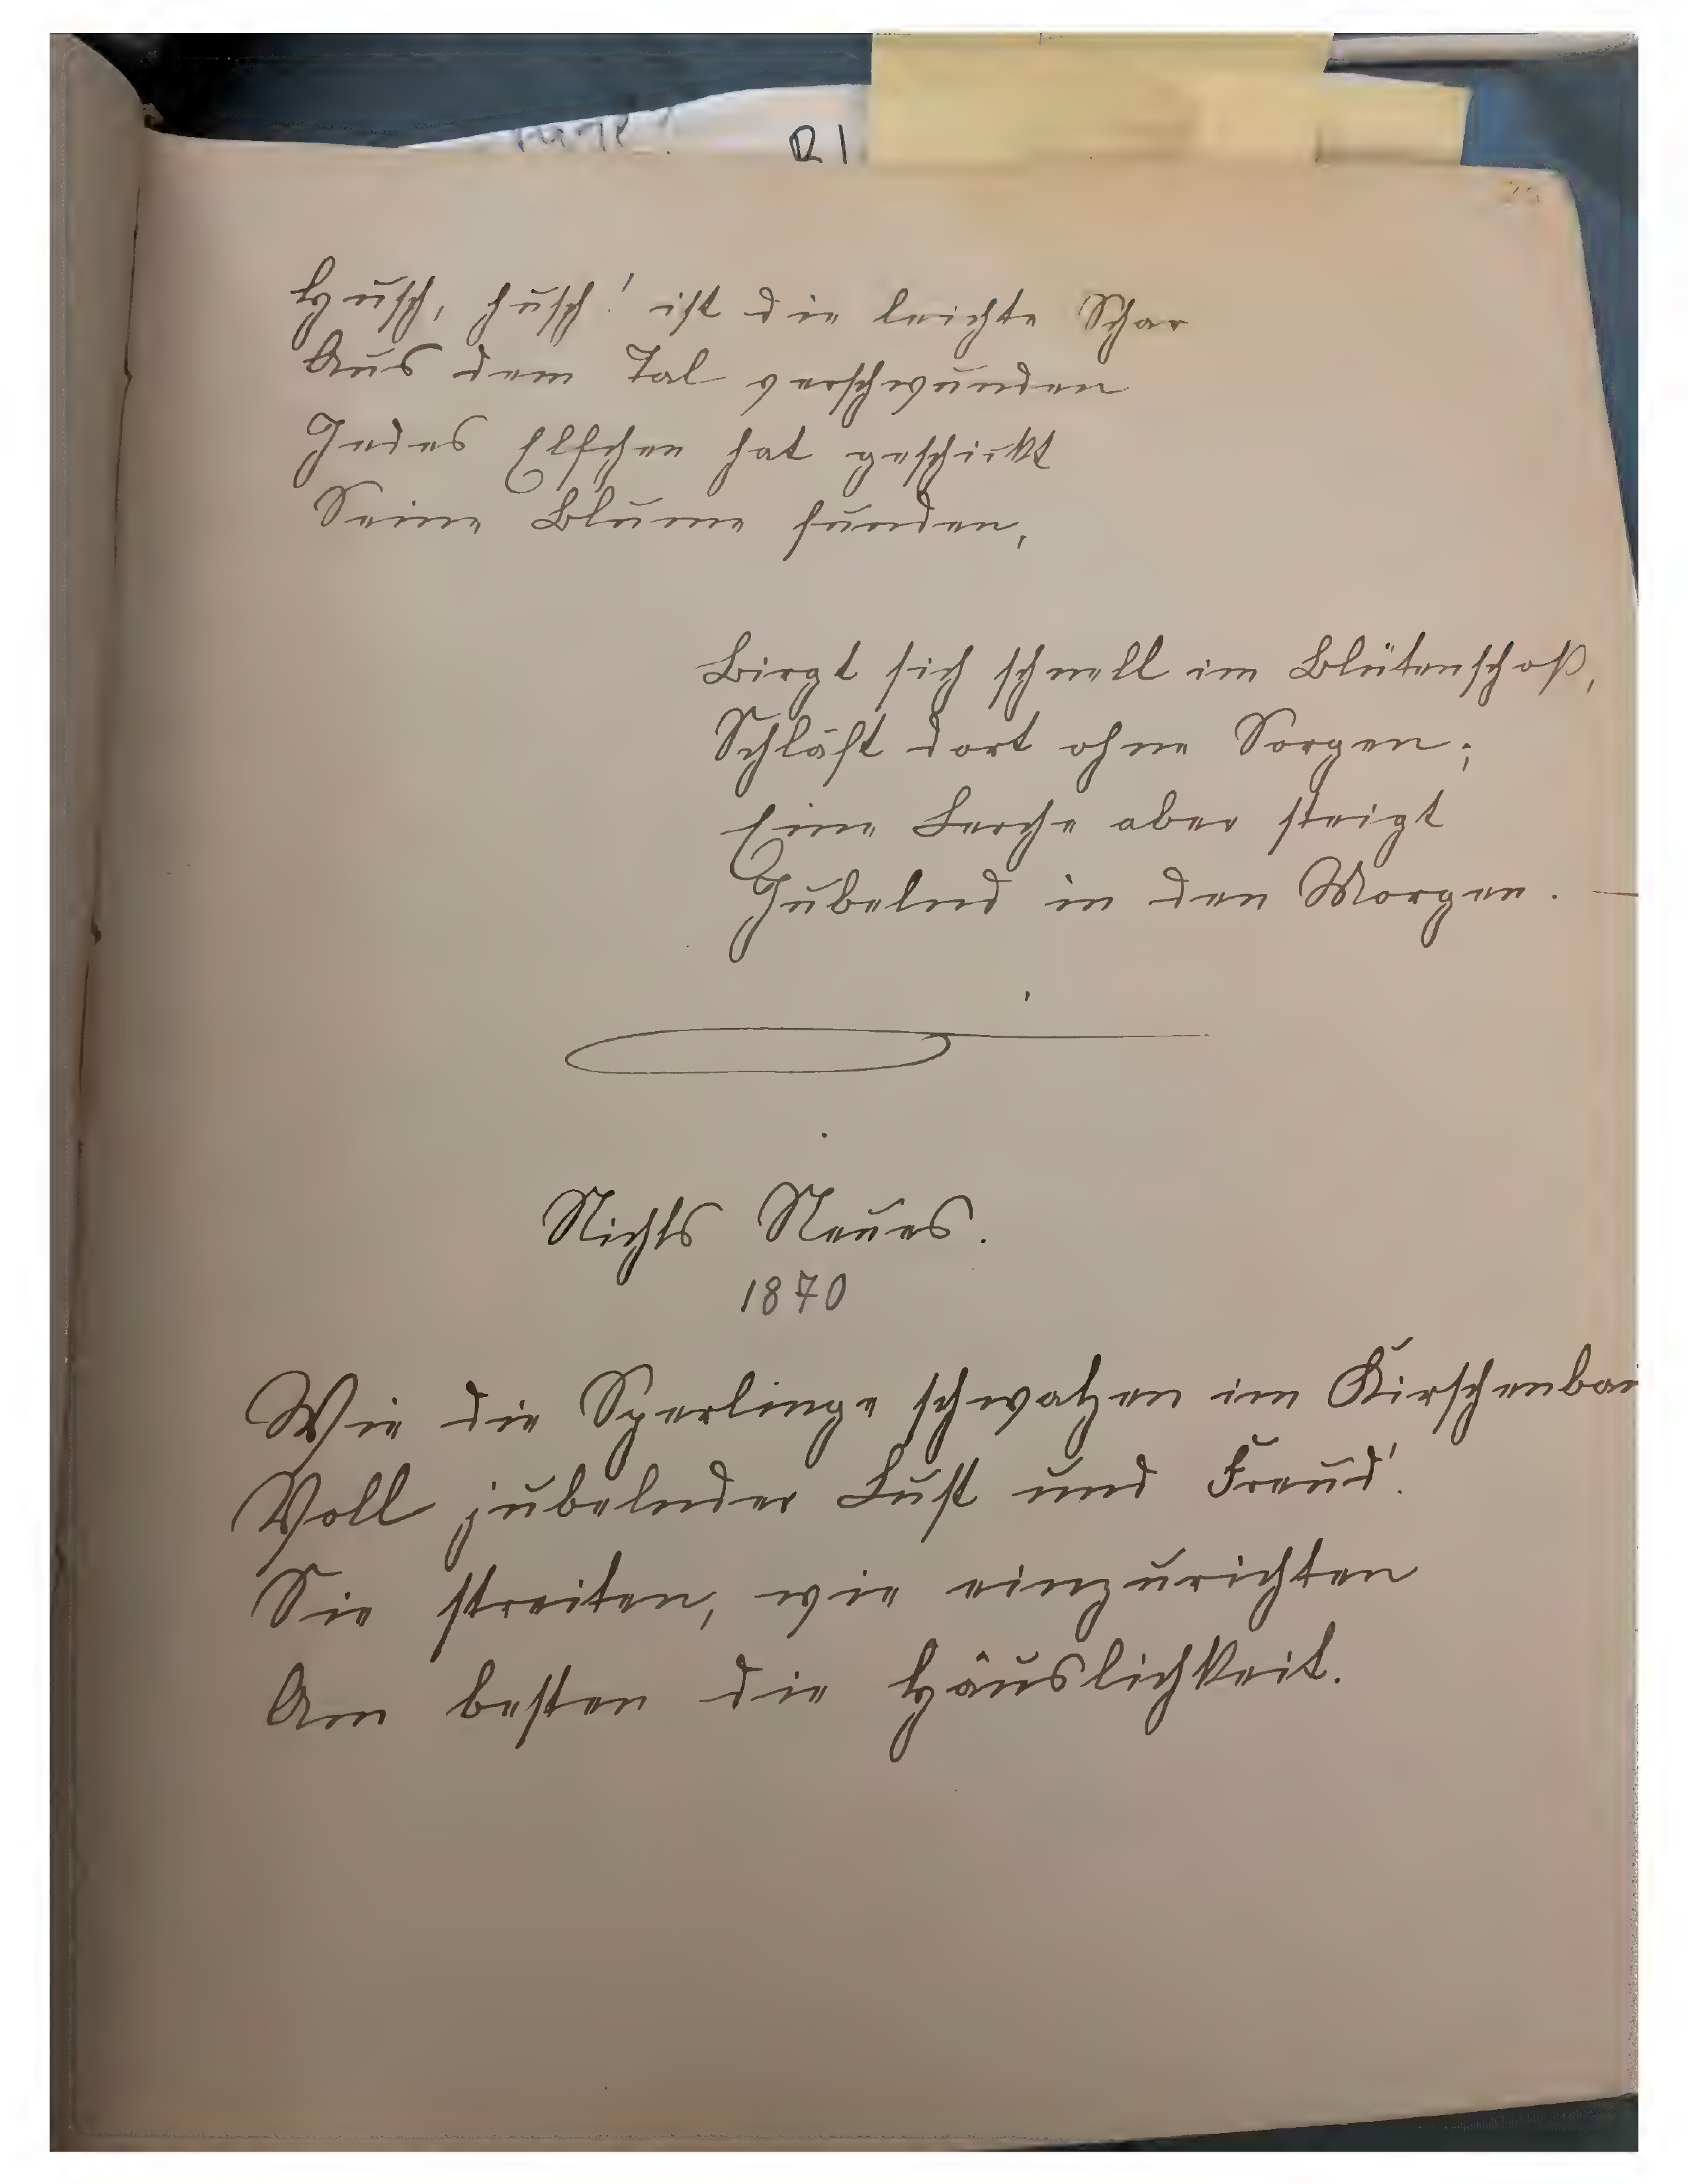 R1
Husch, husch! ist die leichte Schar
Aus dem Tal verschwunden
Jedes Elfchen hat geschickt
Seine Blume funden,
Birgt sich schnell im Blütenschoß,
Schläft dort ohne Sorgen;
Eine Lerche aber steigt
Jubelnd in den Morgen. —
Nichts Neues.
1870
Wie die Sperlinge schwatzen im Kirschenbau
Voll jubelnder Lust und Freud'.
Sie streiten, wie einzurichten
Am besten die Häuslichkeit.